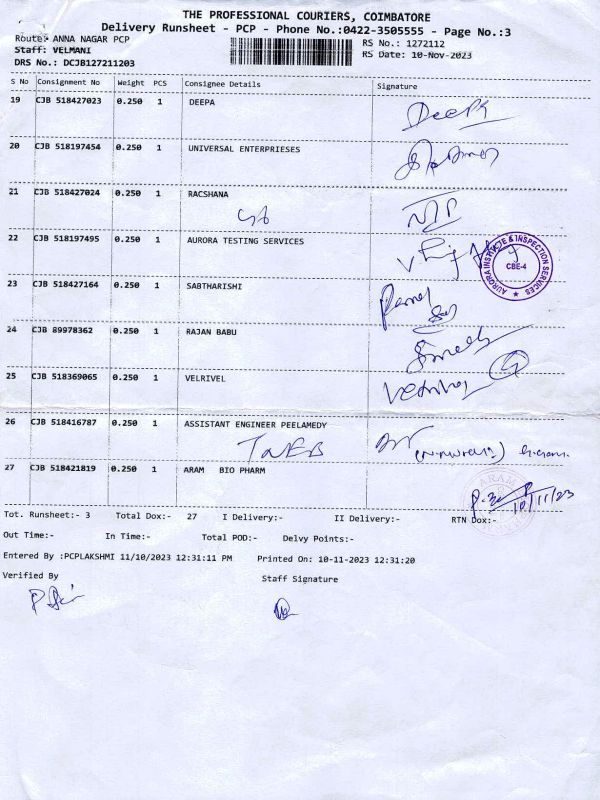 THE PROFESSIONAL COURIERS, COIMBATORE
Delivery Runsheet - PCP - Phone No.:0422-3505555 - Page No.:3
Route: ANNA NAGAR PCP
RS No.: 1272112
Staff: VELMANI
RS Date: 10-Nov-2023
DRS No.: DCJB127211203
S No Consignment No Weight PCS Consignee Details Signature
19 CJB 518427023 0.250 1 DEEPA Deepa
20 CJB 518197454 0.250 1 UNIVERSAL ENTERPRIESES
21 CJB 518427024 0.250 1 RACSHANA
22 CJB 518197495 0.250 1 AURORA TESTING SERVICES
AURORA INSTITUTE & INSPECTION SERVICES
CBE-4
23 CJB 518427164 0.250 1 SABTHARISHI
24 CJB 89978362 0.250 1 RAJAN BABU
25 CJB 518369065 0.250 1 VELRIVEL
26 CJB 518416787 0.250 1 ASSISTANT ENGINEER PEELAMEDY
TNEB
27 CJB 518421819 0.250 1 ARAM BIO PHARM
ARAM
10/11/23
Tot. Runsheet:- 3 Total Dox:- 27 I Delivery:- II Delivery:- RTN Dox:-
Out Time:- In Time:- Total POD:- Delvy Points:-
Entered By :PCPLAKSHMI 11/10/2023 12:31:11 PM Printed On: 10-11-2023 12:31:20
Verified By Staff Signature